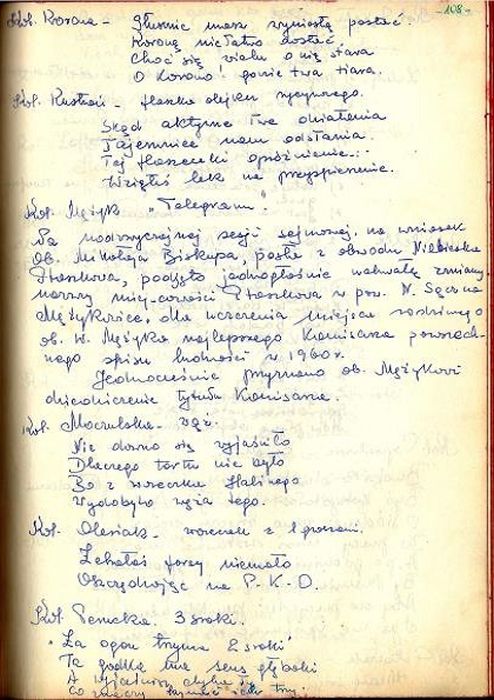 - 108 -
Kol. Korona - Głównie masz wyniosłą postać.
Koronę niełatwo dostać
Choć się wielu o nią stara
O Korono! gdzie twa tiara.
Kol. Kusttań - flaszka olejku rycynowego.
Skąd aktywne Twe działania
Tajemnicę nam odsłania
Tej flaszeczki opróżnienie...
Wziąłeś lek na przyspieszenie.
Kol. Mężyk "Telegram"
Na nadzwyczajnej sesji sejmowej, na wniosek
Ob. Mikołaja Biskupa, posła z obwodu
Ptaszkowa, podjęto jednogłośnie uchwałę zmiany
nazwy miejscowości Ptaszkowa w pow. N. Sącz na
Mężykowice, dla uczczenia miejsca rodzinnego
ob. W. Mężyka najlepszego Komisarza powszech-
nego spisu ludności w 1960 r.
Jednocześnie przyznano ob. Mężykowi
dziedziczenie tytułu Komisarza.
Kol. Moczulska - wąż.
Nie dawno się wyjaśniło
Dlaczego tortu nie było
Bo z woreczka Halinego
Wydobyto węża tego.
Kol. Olesiak - woreczek z 1 groszami.
Zebrałaś forsy niemało
Oszczędzając na P.K.O.
Kol. Pernelka: 3 sroki.
"Za ogon trzyma 2 sroki"
Ta gadka ma sens głęboki
A wyjaśnisz chyba Ty
Co znaczy trzymać ich trzy.